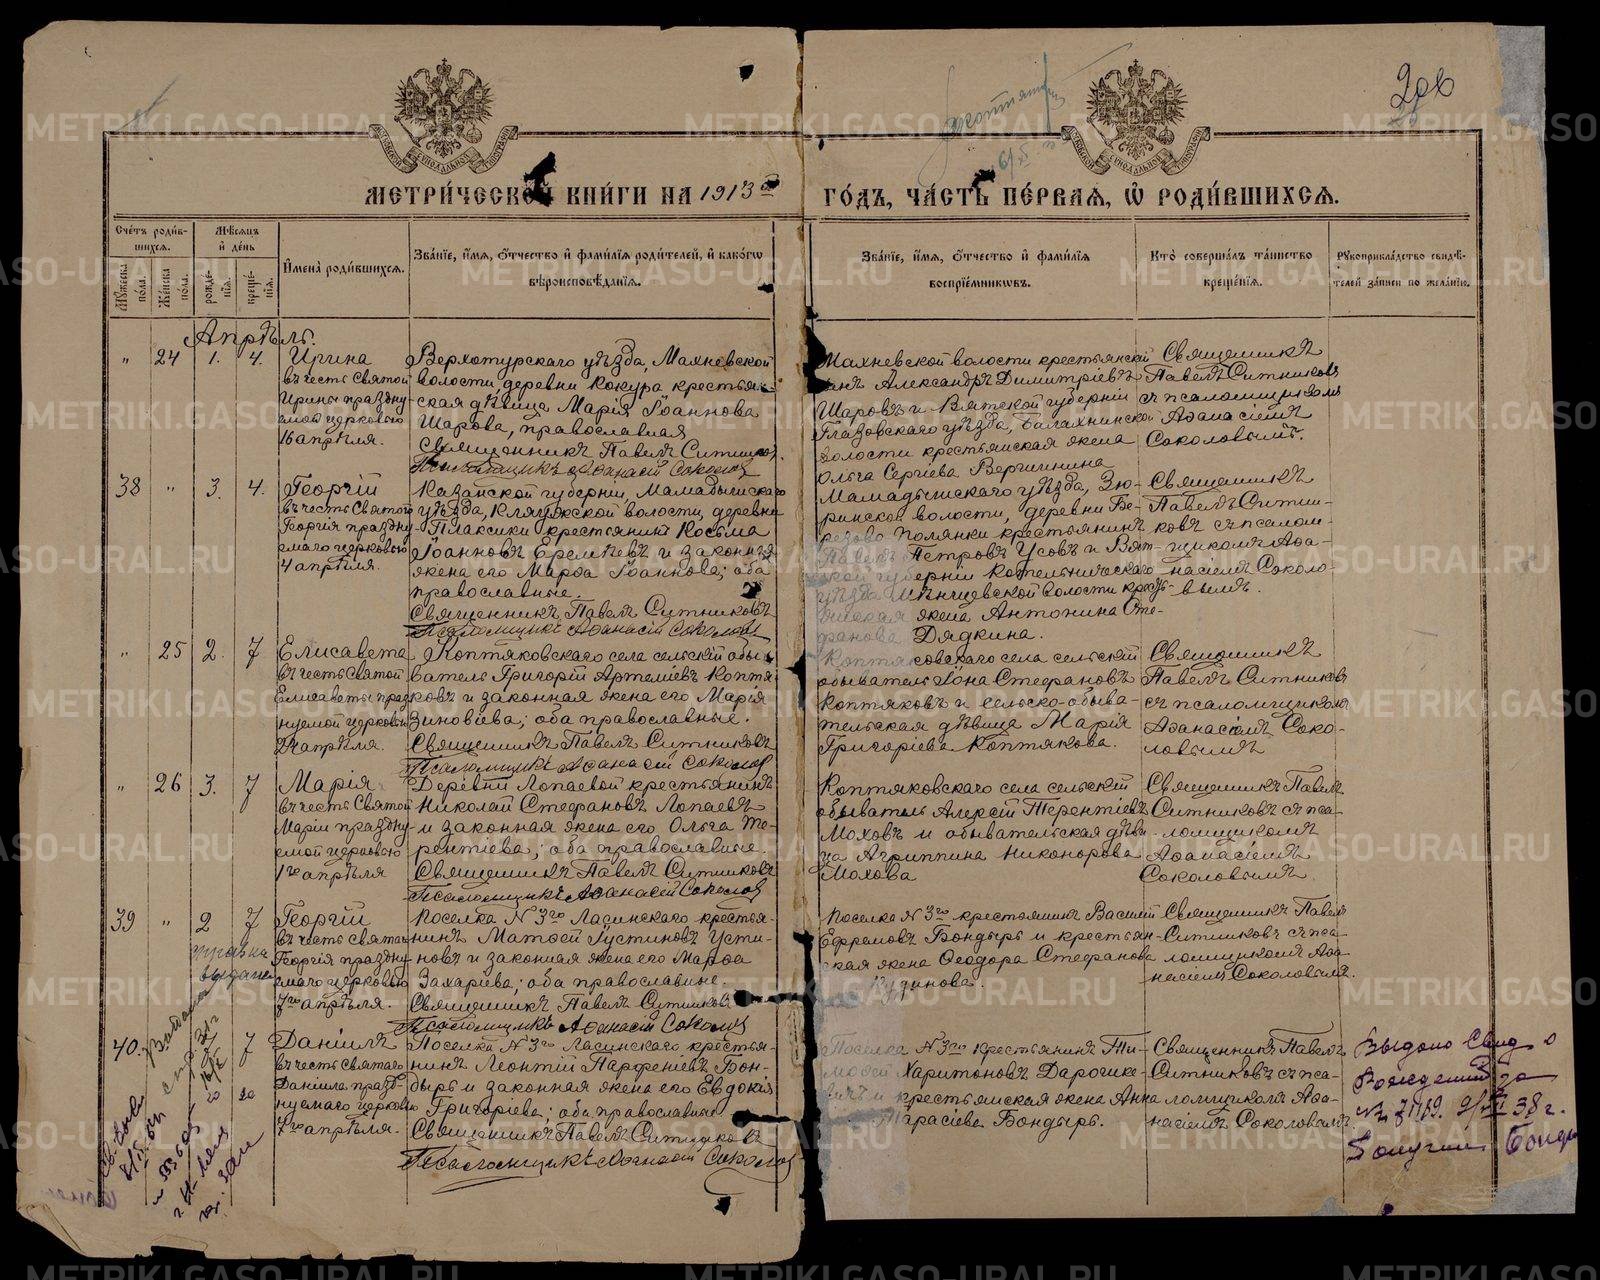 206
Коптяки
МЕТРИ́ЧЕСКОЙ КНИ́ГИ НА 1913 й ГО́ДЪ, ЧА́СТЬ ПЕ́РВАЯ, Ѡ РОДИ́ВШИХСЯ.
Сче́тъ роди́вшихся.
Му́жеска по́ла.
Же́нска по́ла.
Мѣ́сяцъ и де́нь
рожде́нія.
креще́нія.
Имена̀ роди́вшихся.
Зва́ніе, и́мя, о́тчество и фами́лія роди́телей, и како́гѡ
вѣроисповѣ́данія.
Зва́ніе, и́мя, о́тчество и фами́лія
воспріе́мникѡвъ.
Кто̀ соверша́лъ та́инство
креще́нія.
Рукоприкла́дство свидѣ́телей за́писи по жела́нію.
Апрѣль.
" 24 1. 4.
Ирина
въ честь Святой
Ирины праздну-
емой церковью
16 апрѣля.
Верхотурскаго уѣзда, Махневской
волости, деревни Кокура крестьян-
ская дѣвица Марія Іоаннова
Шарова, православная
Священникъ Павелъ Ситников
Псаломщикъ Аѳанасій Соколов
Махневской волости крестьянский
Александръ Димитріевъ
Шаровъ и Вятской губерніи
Глазовскаго уѣзда, Балахнинской
волости крестьянская жена
Ольга Сергіева Вершинина
Священникъ
Павелъ Ситниковъ
съ псаломщикомъ
Аѳанасіемъ
Соколовымъ.
38 " 3. 4.
Георгій
въ честь Святого
Георгія праздну-
емаго церковью
4 апрѣля.
Казанской губерніи, Мамадышскаго
уѣзда, Кляушской волости, деревни
Плаксики крестьянинъ Косьма
Іоанновъ Еремѣевъ и законная
жена его Марѳа Іоаннова; оба
православные.
Священникъ Павелъ Ситниковъ
Псаломщикъ Аѳанасій Соколов
Мамадышскаго уѣзда, Зю-
ринской волости, деревни Бе-
резово Полянки крестьянинъ
Павелъ Петровъ Усовъ и Вят-
ской губерніи Котельническаго
уѣзда волости кресть-
жена Антонина Сте-
фанова Дядкина.
Священникъ
Павелъ Ситни-
ковъ съ псалом-
щикомъ Аѳа-
насіемъ Соколо-
вымъ.
" 25 2. 7
Елисавета
въ честь Святой
Елисаветы празд-
нуемой церковью
24 апрѣля.
Коптяковскаго села сельскій обы-
ватель Григорій Артеміевъ Коптя-
ковъ и законная жена его Марія
Зиновіева; оба православные.
Священникъ Павелъ Ситниковъ
Псаломщикъ Аѳанасій Соколов
Коптяковскаго села сельскій
обыватель Іона Стефановъ
Коптяковъ и сельско-обыва-
тельская дѣвица Марія
Григоріева Коптякова.
Священникъ
Павелъ Ситников
съ псаломщикомъ
Аѳанасіемъ Соко-
ловымъ
" 26 3. 7
Марія
въ честь Святой
Маріи праздну-
емой церковью
1го апрѣля
Деревни Лопаевой крестьянинъ
Николай Стефановъ Лопаевъ
и законная жена его Ольга Те-
рентіева; оба православные.
Священникъ Павелъ Ситниковъ
Псаломщикъ Аѳанасій Соколов
Коптяковскаго села сельскій
обыватель Алексій Терентіевъ
Моховъ и обывательская дѣви-
ца Агриппина Никонорова
Мохова
Священникъ Павелъ
Ситниковъ съ пса-
ломщикомъ
Аѳанасіемъ
Соколовымъ.
39 " 2 7
Георгій
въ честь Святаго
Георгія праздну-
емаго церковью
7го апрѣля.
Поселка № 3го Ласинскаго крестья-
нинъ Матѳей Іустиновъ Усти-
новъ и законная жена его Марѳа
Захаріева; оба православные.
Священникъ Павелъ Ситников
Псаломщикъ Аѳанасій Соколов
Поселка № 3го крестьянинъ Василій
Ефремовъ Бондырь и крестьян-
ская жена Ѳеодора Стефанова
Кудинова.
Священникъ Павелъ
Ситниковъ съ пса-
ломщикомъ Аѳа-
насіемъ Соколовымъ.
справка
выдана
40. 7
Даніилъ
въ честь Святаго
Даніила празд-
нуемаго церковью
7го апрѣля.
Поселка № 3го Ласинскаго крестья-
нинъ Леонтій Парѳеніевъ Бон-
дырь и законная жена его Евдокія
Григоріева; оба православные
Священникъ Павелъ Ситников
Псаломщикъ Аѳанасій Соколов
Поселка № 3го крестьянинъ Ти-
моѳей Харитоновъ Дарошке-
вичъ и крестьянская жена Анна
Тарасіева Бондырь.
Священникъ Павелъ
Ситниковъ съ пса-
ломщикомъ Аѳа-
насіемъ Соколовымъ.
Выдано Свид о
Рождении за
38 г.
Получил Бонды
METRIKI.GASO-URAL.RU